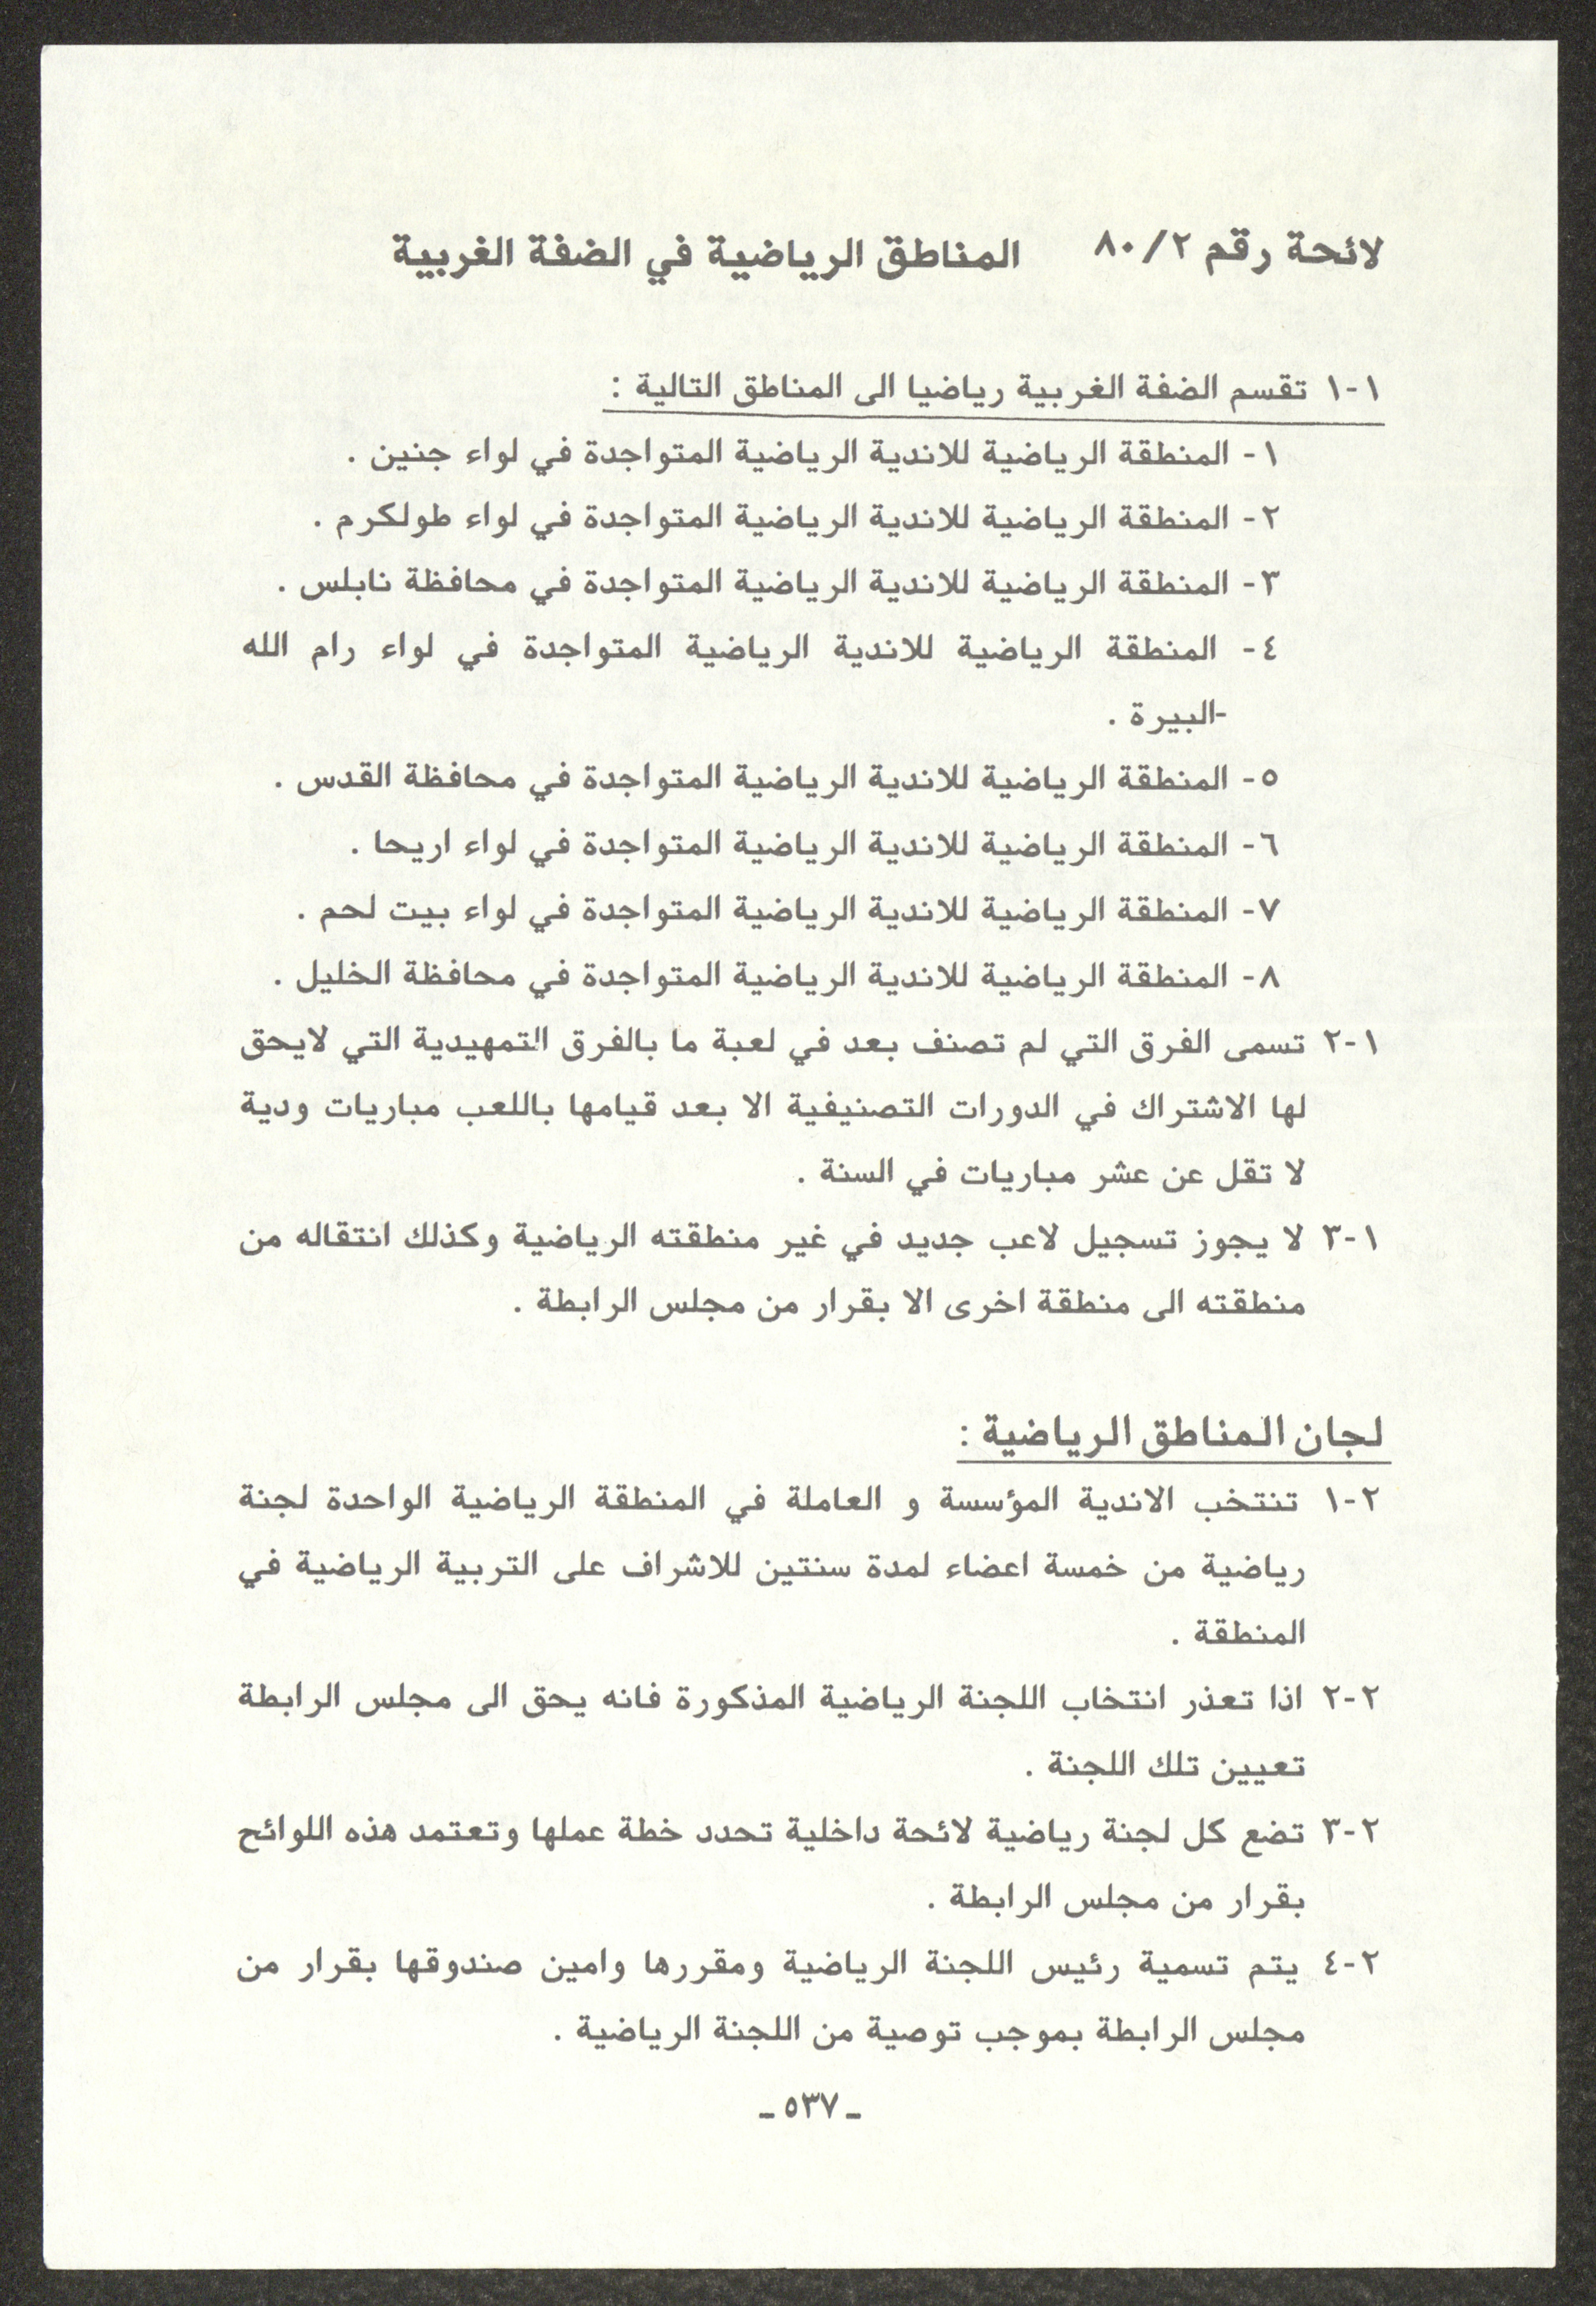 لائحة رقم ٨٠/٢ المناطق الرياضية في الضفة الغربية
١-١ تقسم الضفة الغربية رياضيا الى المناطق التالية :
١- المنطقة الرياضية للاندية الرياضية المتواجدة في لواء جنين .
٢- المنطقة الرياضية للاندية الرياضية المتواجدة في لواء طولكرم .
٣- المنطقة الرياضية للاندية الرياضية المتواجدة في محافظة نابلس .
٤- المنطقة الرياضية للاندية الرياضية المتواجدة في لواء رام الله
-البيرة .
٥- المنطقة الرياضية للاندية الرياضية المتواجدة في محافظة القدس .
٦- المنطقة الرياضية للاندية الرياضية المتواجدة في لواء اريحا .
٧- المنطقة الرياضية للاندية الرياضية المتواجدة في لواء بيت لحم .
٨- المنطقة الرياضية للاندية الرياضية المتواجدة في محافظة الخليل .
١-٢ تسمى الفرق التي لم تصنف بعد في لعبة ما بالفرق التمهيدية التي لايحق
لها الاشتراك في الدورات التصنيفية الا بعد قيامها باللعب مباريات ودية
لا تقل عن عشر مباريات في السنة .
١-٣ لا يجوز تسجيل لاعب جديد في غير منطقته الرياضية وكذلك انتقاله من
منطقته الى منطقة اخرى الا بقرار من مجلس الرابطة .
لجان المناطق الرياضية :
٢-١ تنتخب الاندية المؤسسة و العاملة في المنطقة الرياضية الواحدة لجنة
رياضية من خمسة اعضاء لمدة سنتين للاشراف على التربية الرياضية في
المنطقة .
٢-٢ اذا تعذر انتخاب اللجنة الرياضية المذكورة فانه يحق الى مجلس الرابطة
تعيين تلك اللجنة .
٢-٣ تضع كل لجنة رياضية لائحة داخلية تحدد خطة عملها وتعتمد هذه اللوائح
بقرار من مجلس الرابطة .
٢-٤ يتم تسمية رئيس اللجنة الرياضية ومقررها وامين صندوقها بقرار من
مجلس الرابطة بموجب توصية من اللجنة الرياضية .
ـ ٥٣٧ ـ